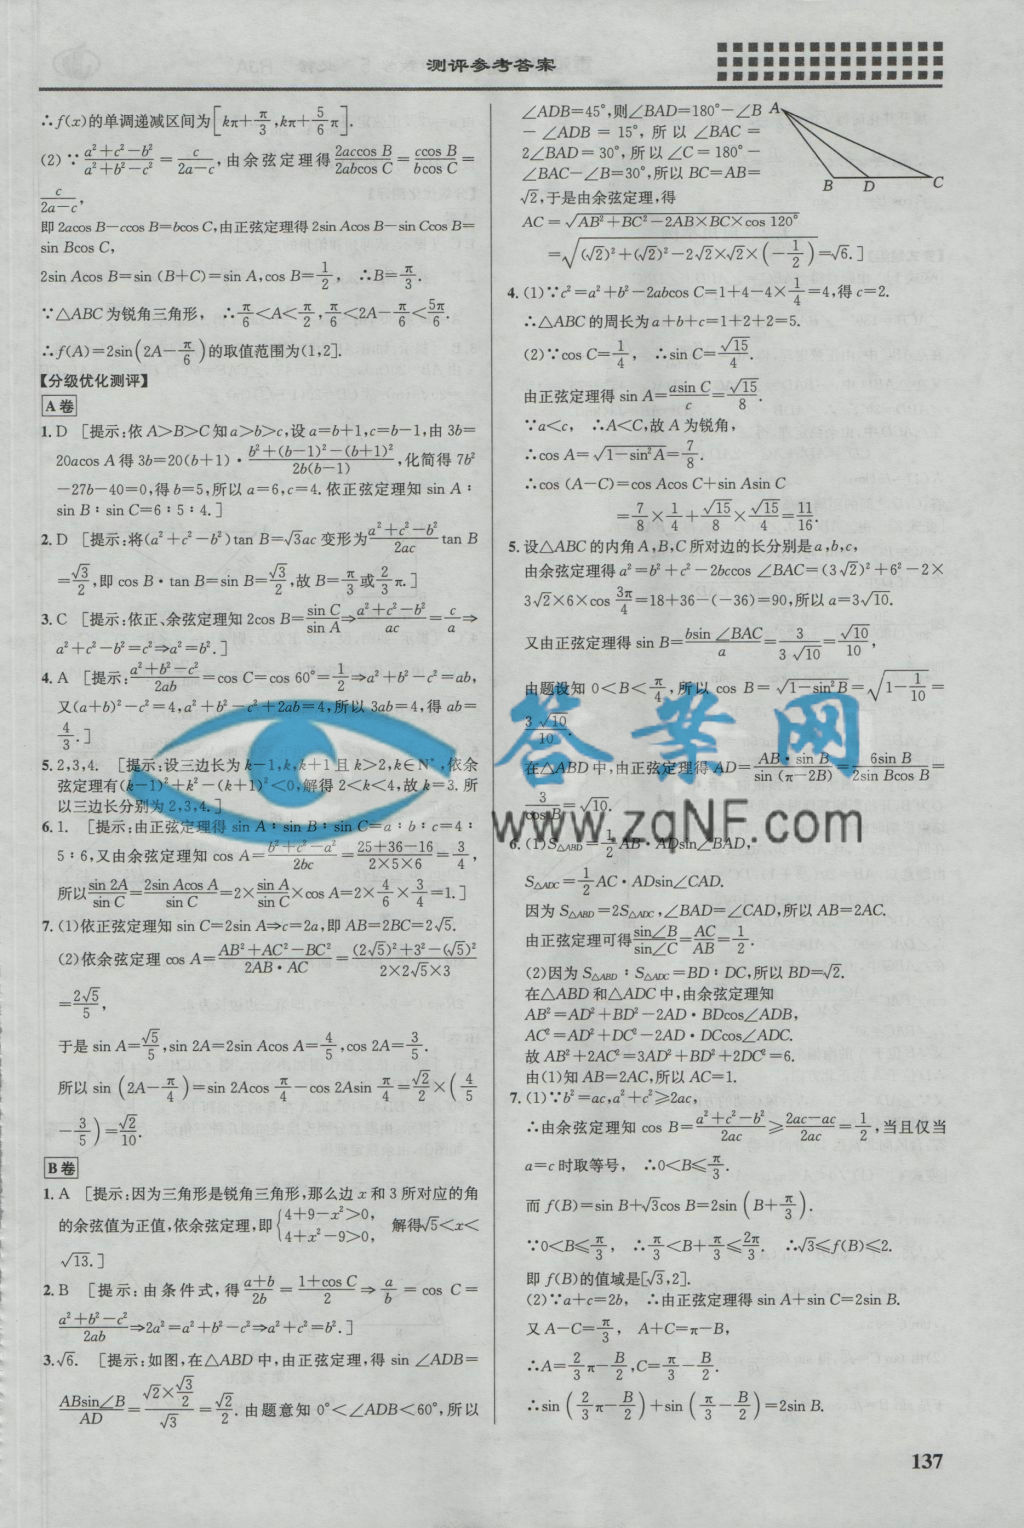 测评参考答案
∴f(x)的单调递减区间为[kπ+π/3,kπ+5/6π].
(2)∵(a²+c²−b²)/(a²+b²−c²)=c/(2a−c),由余弦定理得2accos B/2abcos C=ccos B/bcos C=
c/(2a−c),
即2acos B−ccos B=bcos C,由正弦定理得2sin Acos B−sin Ccos B=
sin Bcos C,
2sin Acos B=sin (B+C)=sin A,cos B=1/2, ∴B=π/3.
∵△ABC为锐角三角形, ∴π/6<A<π/2,π/6<2A−π/6<5π/6.
∴f(A)=2sin(2A−π/6)的取值范围为(1,2].
【分级优化测评】
A卷
1.D [提示:依A>B>C知a>b>c,设a=b+1,c=b−1,由3b=
20acos A得3b=20(b+1)·(b²+(b−1)²−(b+1)²)/(2b(b−1)),化简得7b²
−27b−40=0,得b=5,所以a=6,c=4.依正弦定理知sin A∶
sin B∶sin C=6∶5∶4.]
2.D [提示:将(a²+c²−b²)tan B=√3ac变形为(a²+c²−b²)/2ac tan B
=√3/2,即cos B·tan B=sin B=√3/2,故B=π/3或2/3π.]
3.C [提示:依正、余弦定理知2cos B=sin C/sin A⇒(a²+c²−b²)/ac=c/a⇒
a²+c²−b²=c²⇒a²=b².]
4.A [提示:(a²+b²−c²)/2ab=cos C=cos 60°=1/2⇒a²+b²−c²=ab,
又(a+b)²−c²=4,a²+b²−c²+2ab=4,所以3ab=4,得ab=
4/3.]
5.2,3,4. [提示:设三边长为k−1,k,k+1且k>2,k∈N*,依余
弦定理有(k−1)²+k²−(k+1)²<0,解得2<k<4,故k=3.所
以三边长分别为2,3,4.]
6.1. [提示:由正弦定理得sin A∶sin B∶sin C=a∶b∶c=4∶
5∶6,又由余弦定理知cos A=(b²+c²−a²)/2bc=(25+36−16)/(2×5×6)=3/4,
所以sin 2A/sin C=2sin Acos A/sin C=2×sin A/sin C×cos A=2×4/6×3/4=1.]
7.(1)依正弦定理知sin C=2sin A⇒c=2a,即AB=2BC=2√5.
(2)依余弦定理cos A=(AB²+AC²−BC²)/(2AB·AC)=((2√5)²+3²−(√5)²)/(2×2√5×3)
=2√5/5,
于是sin A=√5/5,sin 2A=2sin Acos A=4/5,cos 2A=3/5.
所以sin (2A−π/4)=sin 2Acos π/4−cos 2Asin π/4=√2/2×(4/5
−3/5)=√2/10.
B卷
1.A [提示:因为三角形是锐角三角形,那么边x和3所对应的角
的余弦值为正值,依余弦定理,即{4+9−x²>0, 4+x²−9>0, 解得√5<x<
√13.]
2.B [提示:由条件式,得(a+b)/2b=(1+cos C)/2⇒a/b=cos C=
(a²+b²−c²)/2ab⇒2a²=a²+b²−c²⇒a²+c²=b².]
3.√6. [提示:如图,在△ABD中,由正弦定理,得sin ∠ADB=
ABsin∠B/AD=(√2×√3/2)/√3=√2/2.由题意知0°<∠ADB<60°,所以
∠ADB=45°,则∠BAD=180°−∠B
−∠ADB=15°,所以∠BAC=
2∠BAD=30°,所以∠C=180°−
∠BAC−∠B=30°,所以BC=AB=
√2,于是由余弦定理,得
A
B
D
C
AC=√(AB²+BC²−2AB×BC×cos 120°)
=√((√2)²+(√2)²−2√2×√2×(−1/2))=√6.]
4.(1)∵c²=a²+b²−2abcos C=1+4−4×1/4=4,得c=2.
∴△ABC的周长为a+b+c=1+2+2=5.
(2)∵cos C=1/4, ∴sin C=√15/4.
由正弦定理得sin A=asin C/c=√15/8.
∵a<c, ∴A<C,故A为锐角,
∴cos A=√(1−sin²A)=7/8.
∴cos (A−C)=cos Acos C+sin Asin C
=7/8×1/4+√15/8×√15/4=11/16.
5.设△ABC的内角A,B,C所对边的长分别是a,b,c,
由余弦定理得a²=b²+c²−2bccos ∠BAC=(3√2)²+6²−2×
3√2×6×cos 3π/4=18+36−(−36)=90,所以a=3√10.
又由正弦定理得sin B=bsin ∠BAC/a=3/(3√10)=√10/10,
由题设知0<B<π/4,所以cos B=√(1−sin²B)=√(1−1/10)=
3√10/10.
在△ABD中,由正弦定理得AD=AB·sin B/sin (π−2B)=6sin B/2sin Bcos B=
3/cos B=√10.
6.(1)S△ABD=1/2AB·ADsin∠BAD,
S△ADC=1/2AC·ADsin∠CAD.
因为S△ABD=2S△ADC,∠BAD=∠CAD,所以AB=2AC.
由正弦定理可得sin∠B/sin∠C=AC/AB=1/2.
(2)因为S△ABD∶S△ADC=BD∶DC,所以BD=√2.
在△ABD和△ADC中,由余弦定理知
AB²=AD²+BD²−2AD·BDcos∠ADB,
AC²=AD²+DC²−2AD·DCcos∠ADC.
故AB²+2AC²=3AD²+BD²+2DC²=6.
由(1)知AB=2AC,所以AC=1.
7.(1)∵b²=ac,a²+c²≥2ac,
∴由余弦定理知cos B=(a²+c²−b²)/2ac≥(2ac−ac)/2ac=1/2,当且仅当
a=c时取等号, ∴0<B≤π/3.
而f(B)=sin B+√3cos B=2sin (B+π/3).
∵0<B≤π/3, ∴π/3<B+π/3≤2π/3. ∴√3≤f(B)≤2.
即f(B)的值域是[√3,2].
(2)∵a+c=2b, ∴由正弦定理得sin A+sin C=2sin B.
又A−C=π/3, A+C=π−B,
∴A=2/3π−B/2,C=π/3−B/2.
∴sin(2/3π−B/2)+sin(π/3−B/2)=2sin B.
答案网
www.zqNF.com
137